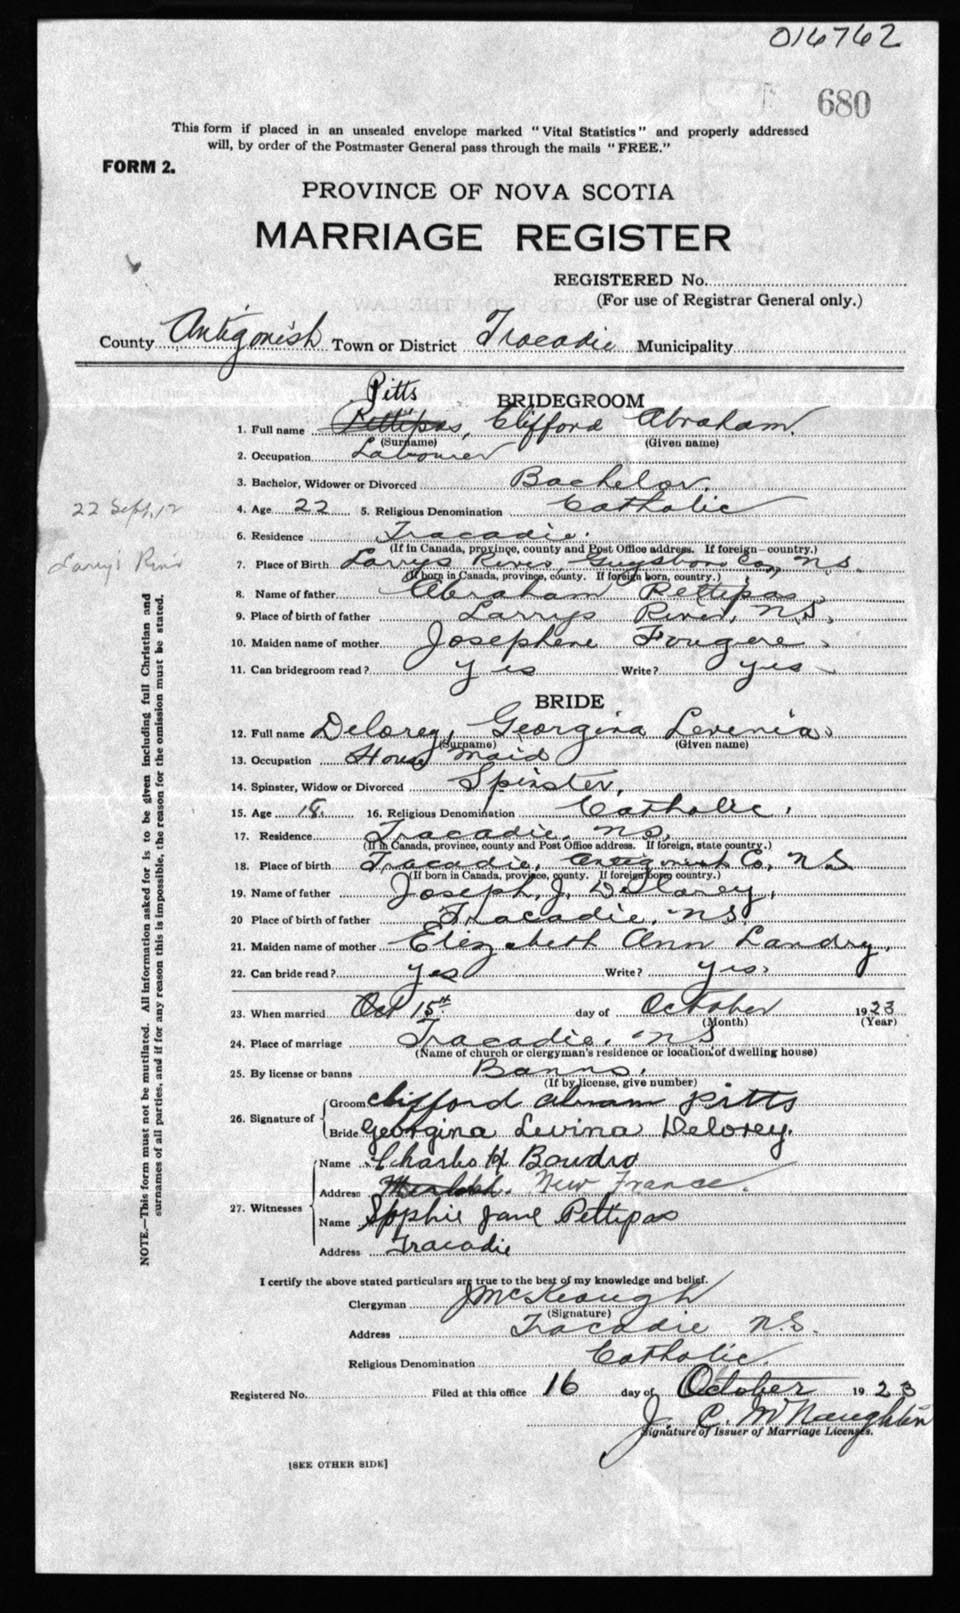 016762
680
This form if placed in an unsealed envelope marked "Vital Statistics" and properly addressed
will, by order of the Postmaster General pass through the mails "FREE."
FORM 2.
PROVINCE OF NOVA SCOTIA
MARRIAGE REGISTER
REGISTERED No.
(For use of Registrar General only.)
County Antigonish Town or District Tracadie Municipality
Pitts
BRIDEGROOM
1. Full name Pettipas, Clifford Abraham.
(Surname) (Given name)
2. Occupation Labourer
3. Bachelor, Widower or Divorced Bachelor.
4. Age 22 5. Religious Denomination Catholic
22 Sept. 12
6. Residence Tracadie.
(If in Canada, province, county and Post Office address. If foreign—country.)
7. Place of Birth Larrys River Guysboro Co, N.S.
Larry's River
(If born in Canada, province, county. If foreign born, country.)
8. Name of father Abraham Pettipas
9. Place of birth of father Larrys River, N.S.
10. Maiden name of mother Josephene Fougere
11. Can bridegroom read? yes Write? yes
BRIDE
12. Full name Delorey, Georgina Levenia
(Surname) (Given name)
13. Occupation House Maid
14. Spinster, Widow or Divorced Spinster.
15. Age 18. 16. Religious Denomination Catholic.
17. Residence Tracadie. N.S.
(If in Canada, province, county and Post Office address. If foreign, state country.)
18. Place of birth Tracadie, Antigonish Co, N.S
(If born in Canada, province, county. If foreign born country.)
19. Name of father Joseph. J. Delorey,
20 Place of birth of father Tracadie. N.S.
21. Maiden name of mother Elizabeth Ann Landry.
22. Can bride read? yes Write? yes.
23. When married Oct 15th day of October 1923
(Month) (Year)
24. Place of marriage Tracadie. N.S
(Name of church or clergyman's residence or location of dwelling house)
25. By license or banns Banns.
(If by license, give number)
26. Signature of Groom Clifford Abram Pitts
Bride Georgina Levina Delorey.
27. Witnesses Name Charles H Boudro
Address New France.
Name Sophie Jane Pettipas
Address Tracadie
I certify the above stated particulars are true to the best of my knowledge and belief.
Clergyman J McKeough
(Signature)
Address Tracadie N.S.
Religious Denomination Catholic.
Registered No. Filed at this office 16 day of October 1923
J. C. McNaughtin
Signature of Issuer of Marriage Licenses.
[SEE OTHER SIDE]
NOTE.—This form must not be mutilated. All information asked for is to be given including full Christian and
surnames of all parties, and if for any reason this is impossible, the reason for the omission must be stated.